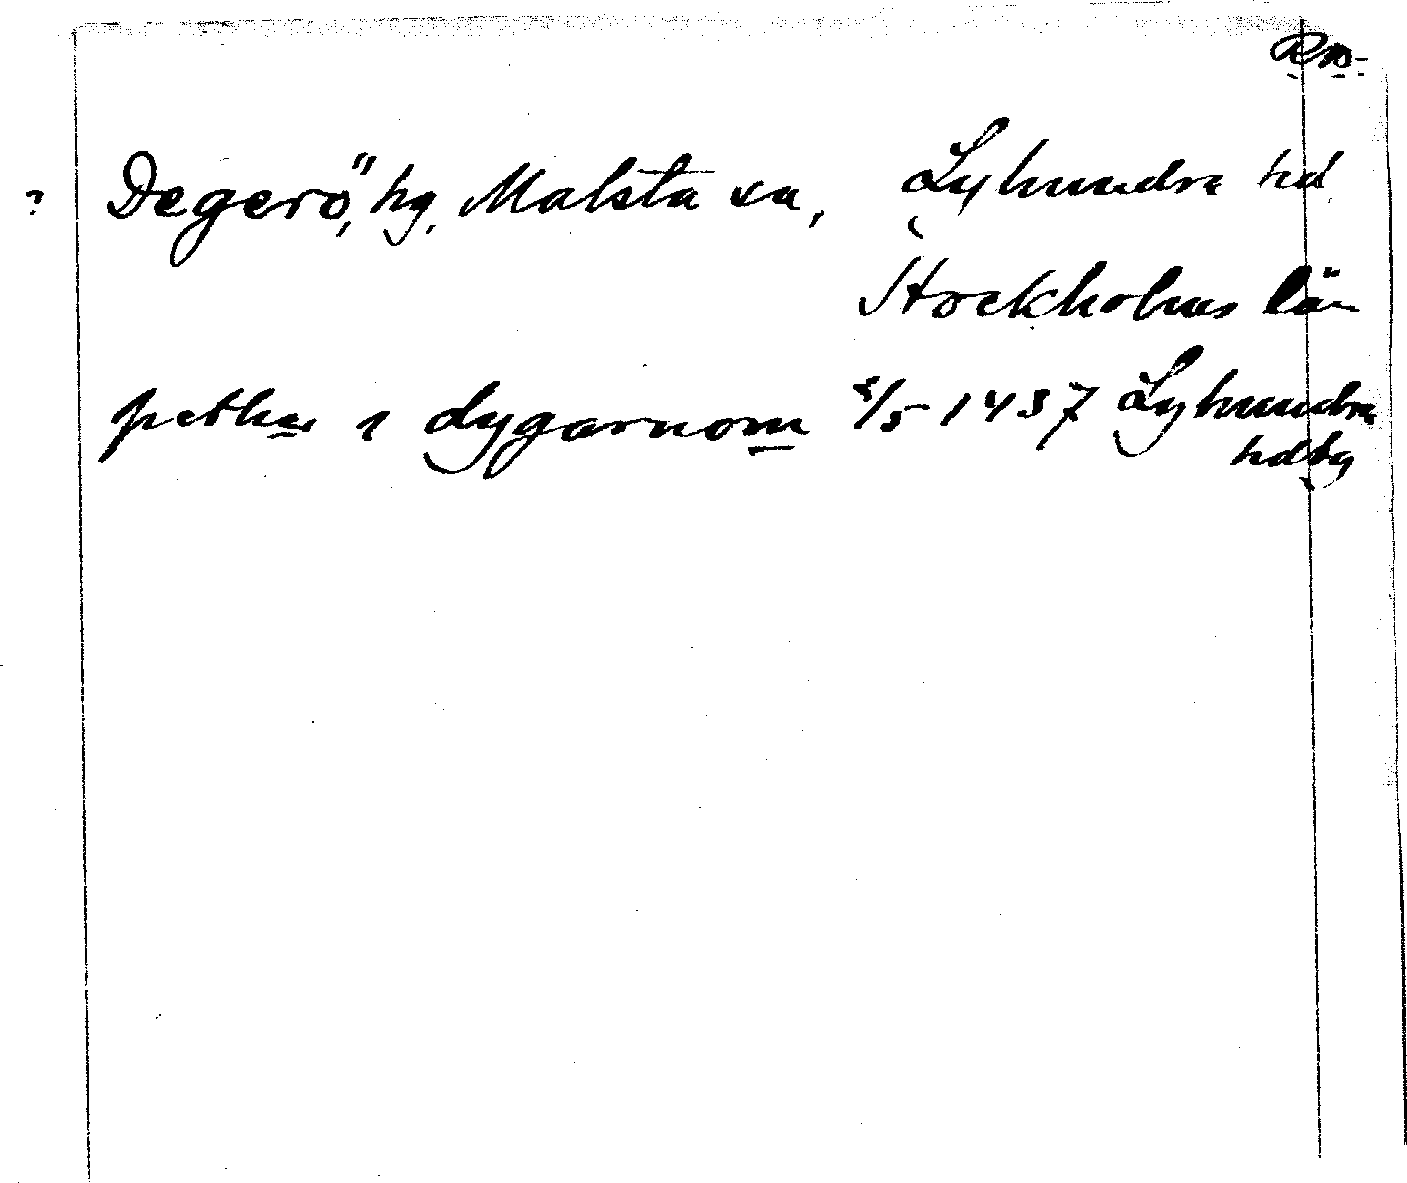 ? Degerö, hg, Malsta sn, Lyhundra hd
Stockholms län
pether i dygarnom 5/5 1437 Lyhundra
hdtg